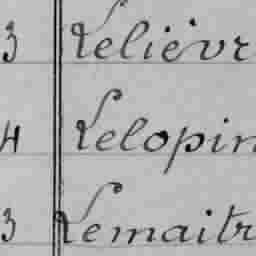 3 Lelièvr
4 Lelopin
3 Lemaitr